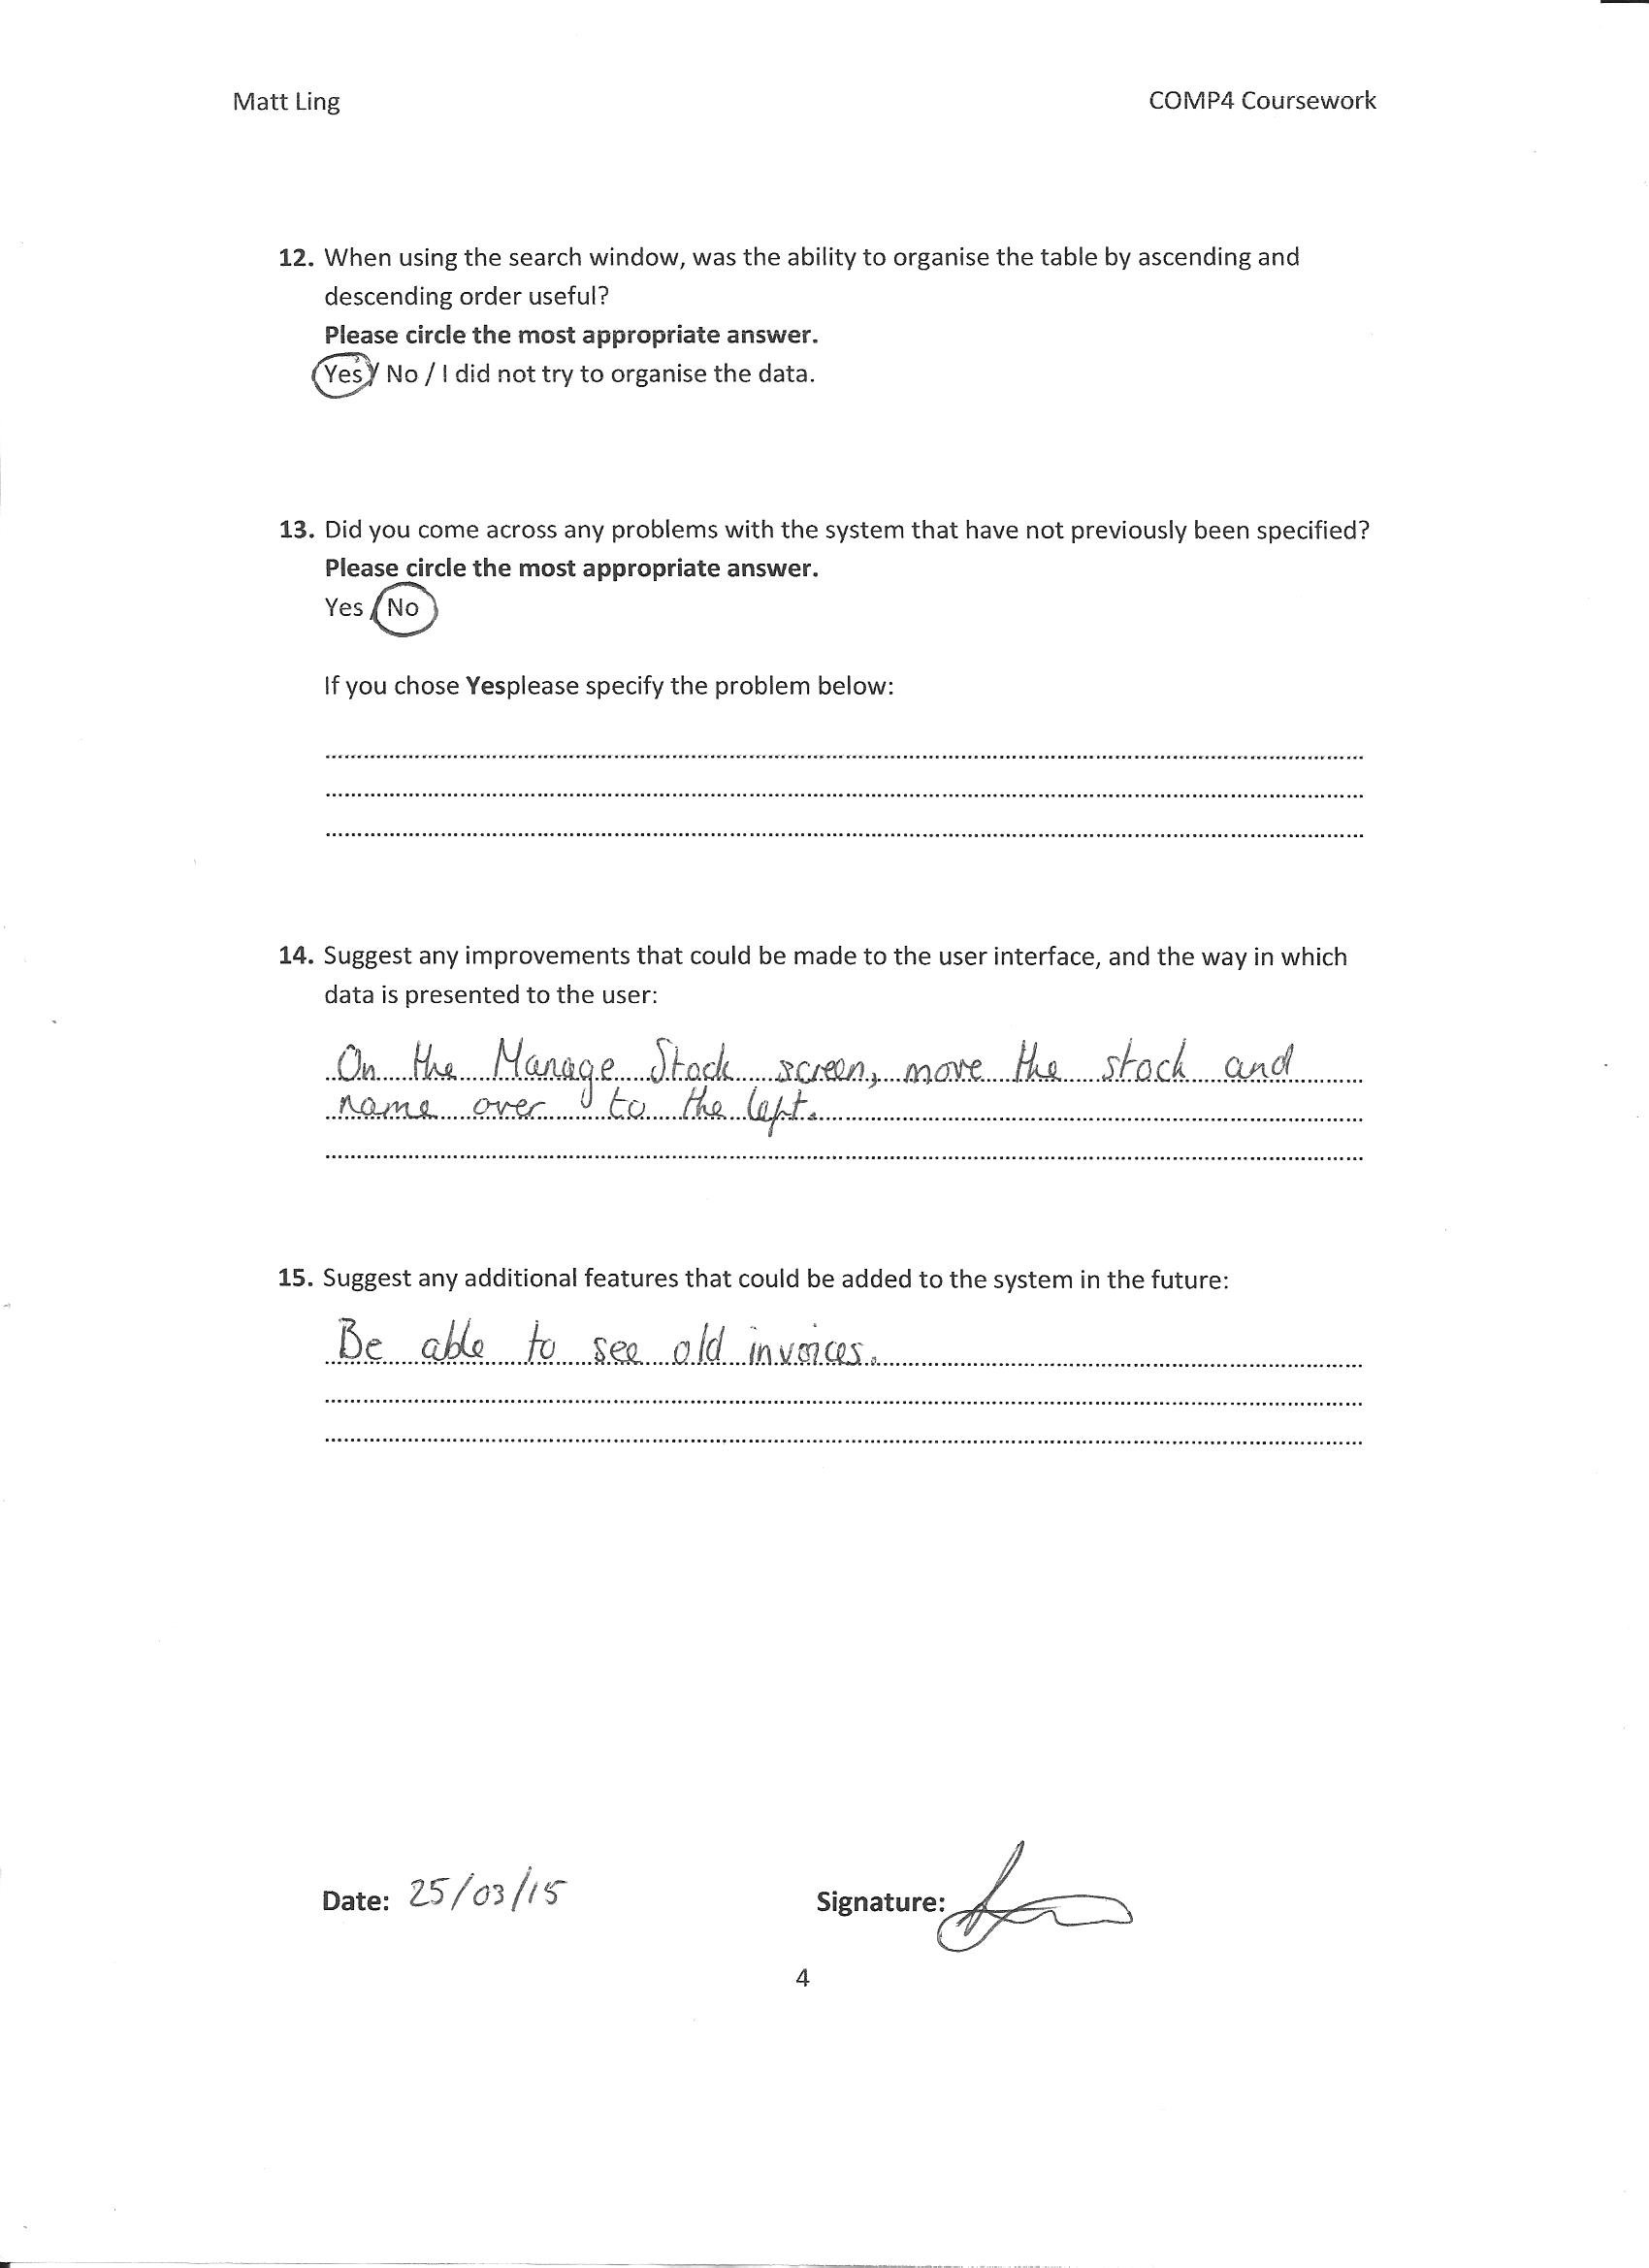 Matt Ling
COMP4 Coursework
12. When using the search window, was the ability to organise the table by ascending and
descending order useful?
Please circle the most appropriate answer.
Yes / No / I did not try to organise the data.
13. Did you come across any problems with the system that have not previously been specified?
Please circle the most appropriate answer.
Yes / No
If you chose Yesplease specify the problem below:
14. Suggest any improvements that could be made to the user interface, and the way in which
data is presented to the user:
On the Manage Stock screen, move the stock and
name over to the left.
15. Suggest any additional features that could be added to the system in the future:
Be able to see old invoices.
Date: 25/03/15
Signature:
4